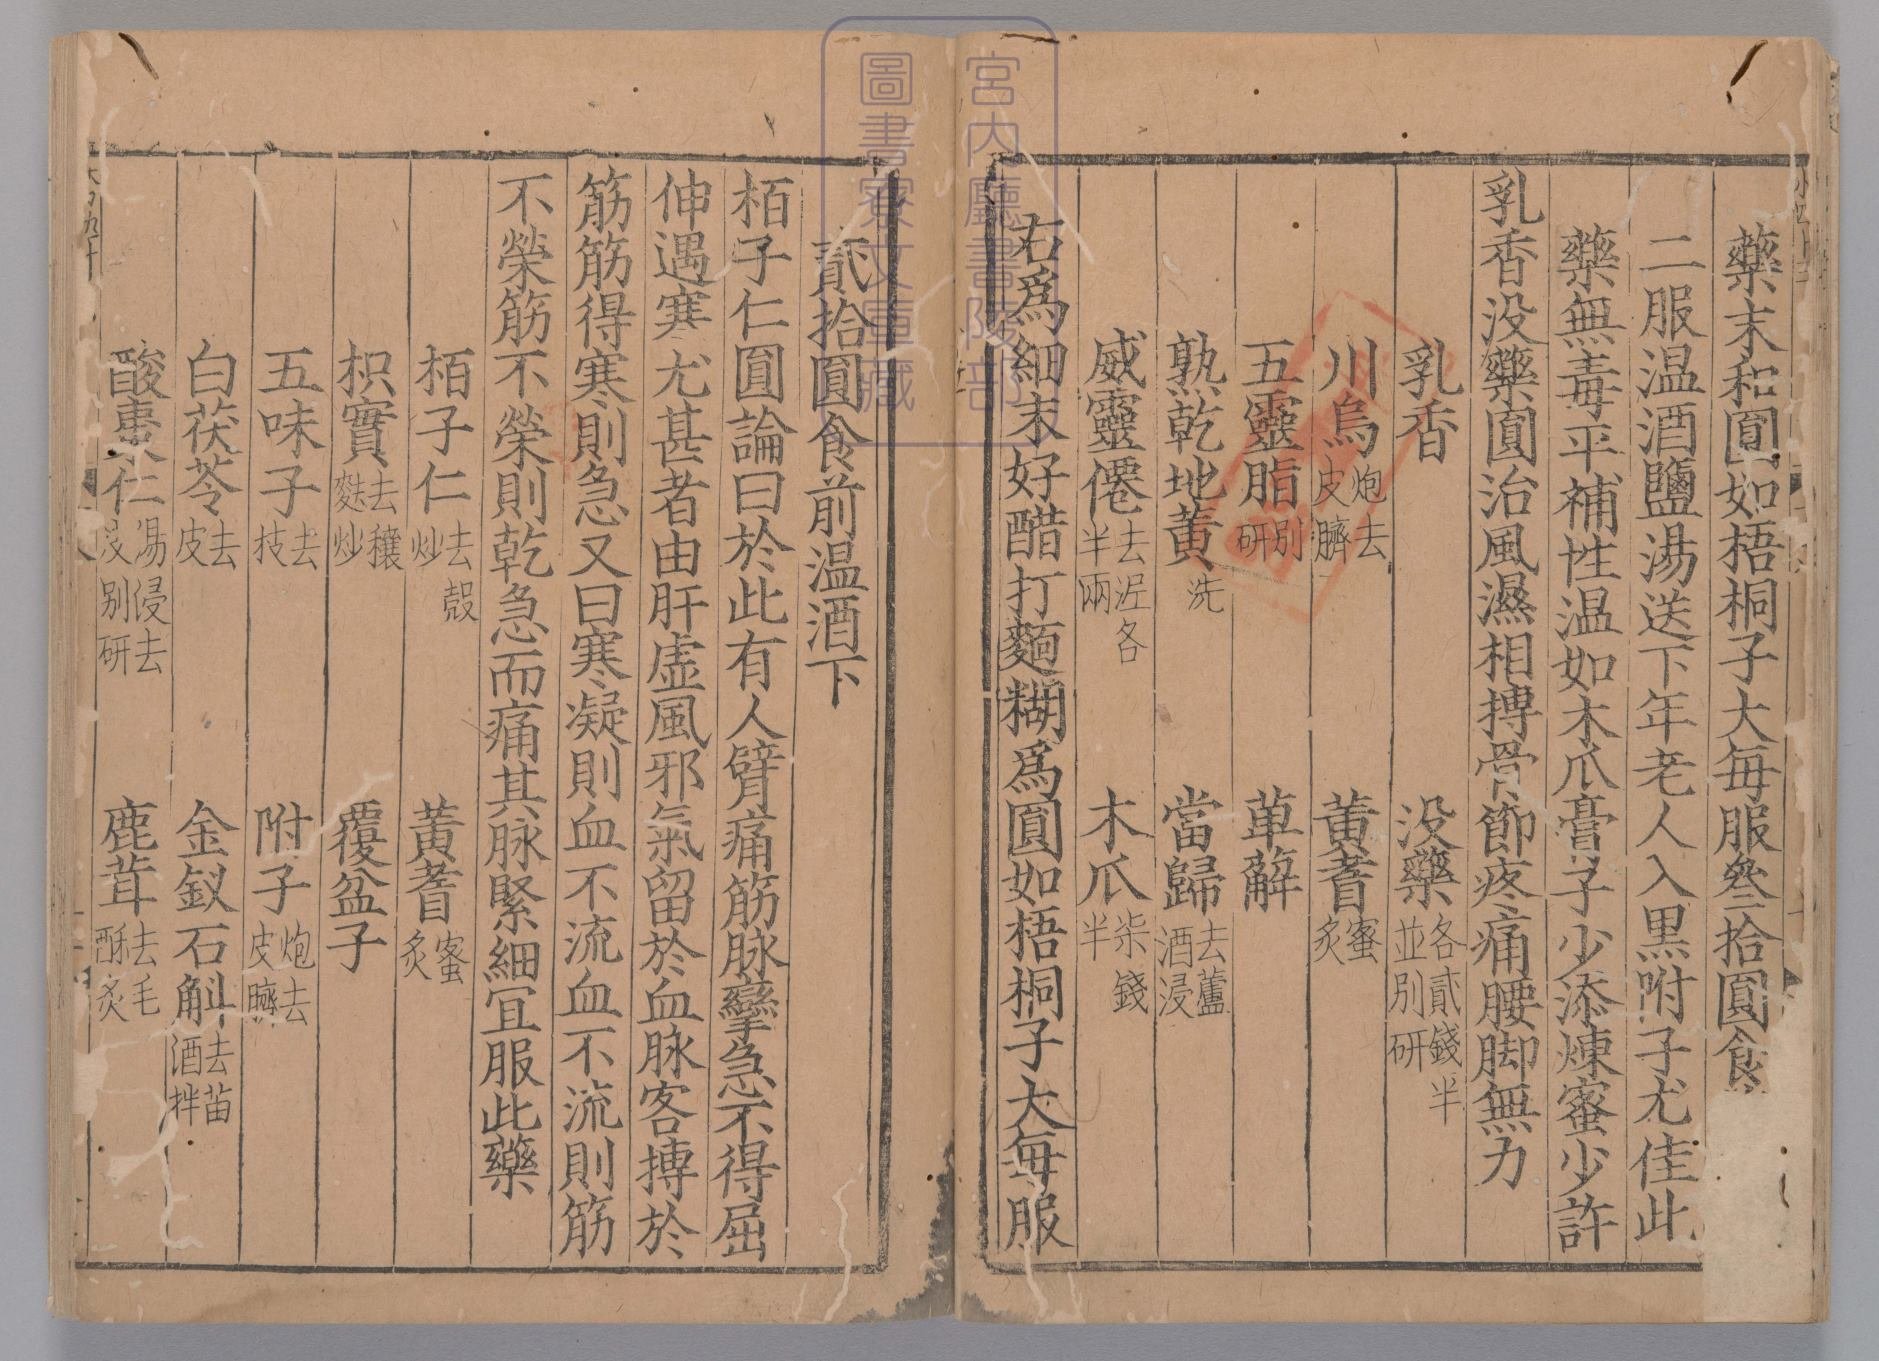 藥末和圓如梧桐子大每服叄拾圓食
二服温酒鹽湯送下年老人入黒附子尤佳此
藥無毒平補性温如木瓜膏子少添煉蜜少許
乳香没藥圓治風濕相搏骨節疼痛腰脚無力
乳香 没藥各貳錢半並別研
川烏炮去皮臍 黄耆蜜炙
五靈脂別研 萆薢
熟乾地黄洗 當歸去蘆酒浸
威靈僊去泥各半兩 木瓜柒錢半
右爲細末好醋打麵糊爲圓如梧桐子大每服
貳拾圓食前温酒下
栢子仁圓論曰於此有人臂痛筋脉攣急不得屈
伸遇寒尤甚者由肝虚風邪氣留於血脉客搏於
筋筋得寒則急又曰寒凝則血不流血不流則筋
不榮筋不榮則乾急而痛其脉緊細宜服此藥
栢子仁去殼炒 黄耆蜜炙
枳實去穰麩炒 覆盆子
五味子去枝 附子炮去皮臍
白茯苓去皮 金釵石斛去苗酒拌
酸棗仁湯浸去皮別研 鹿茸去毛酥炙
宮内廳書陵部
圖書寮文庫藏